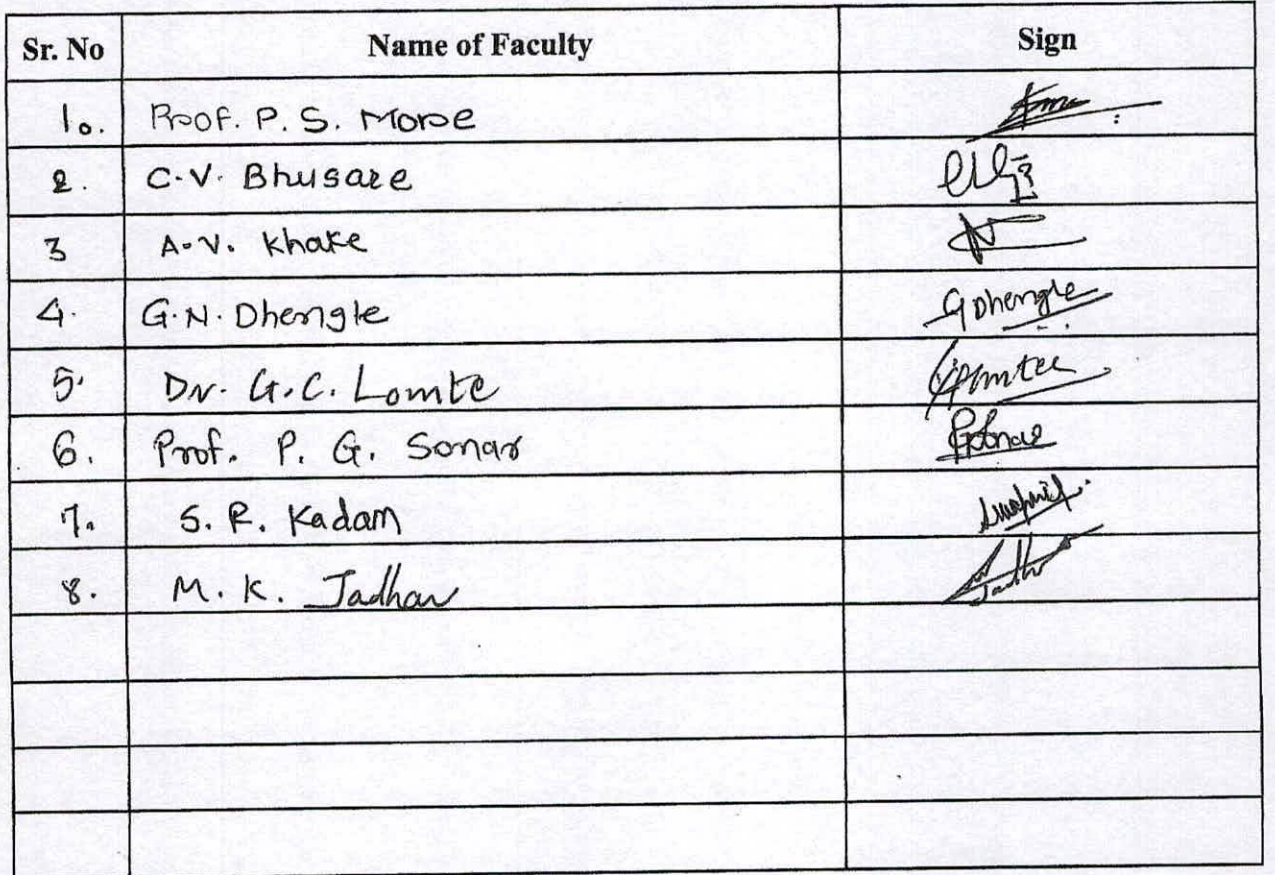 Sr. No Name of Faculty Sign
1. Prof. P. S. More
2. C.V. Bhusare
3 A.V. Khake
4. G.N. Dhengle GDhengle
5. Dr. G.C. Lomte
6. Prof. P. G. Sonar
7. S. R. Kadam
8. M. K. Jadhav Jadhav